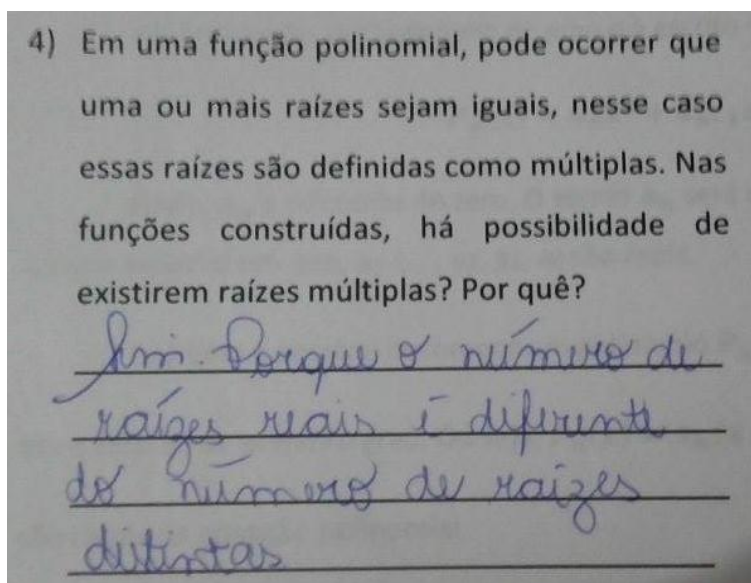 4) Em uma função polinomial, pode ocorrer que
uma ou mais raízes sejam iguais, nesse caso
essas raízes são definidas como múltiplas. Nas
funções construídas, há possibilidade de
existirem raízes múltiplas? Por quê?
Sim. Porque o número de
raízes reais é diferente
do número de raízes
distintas